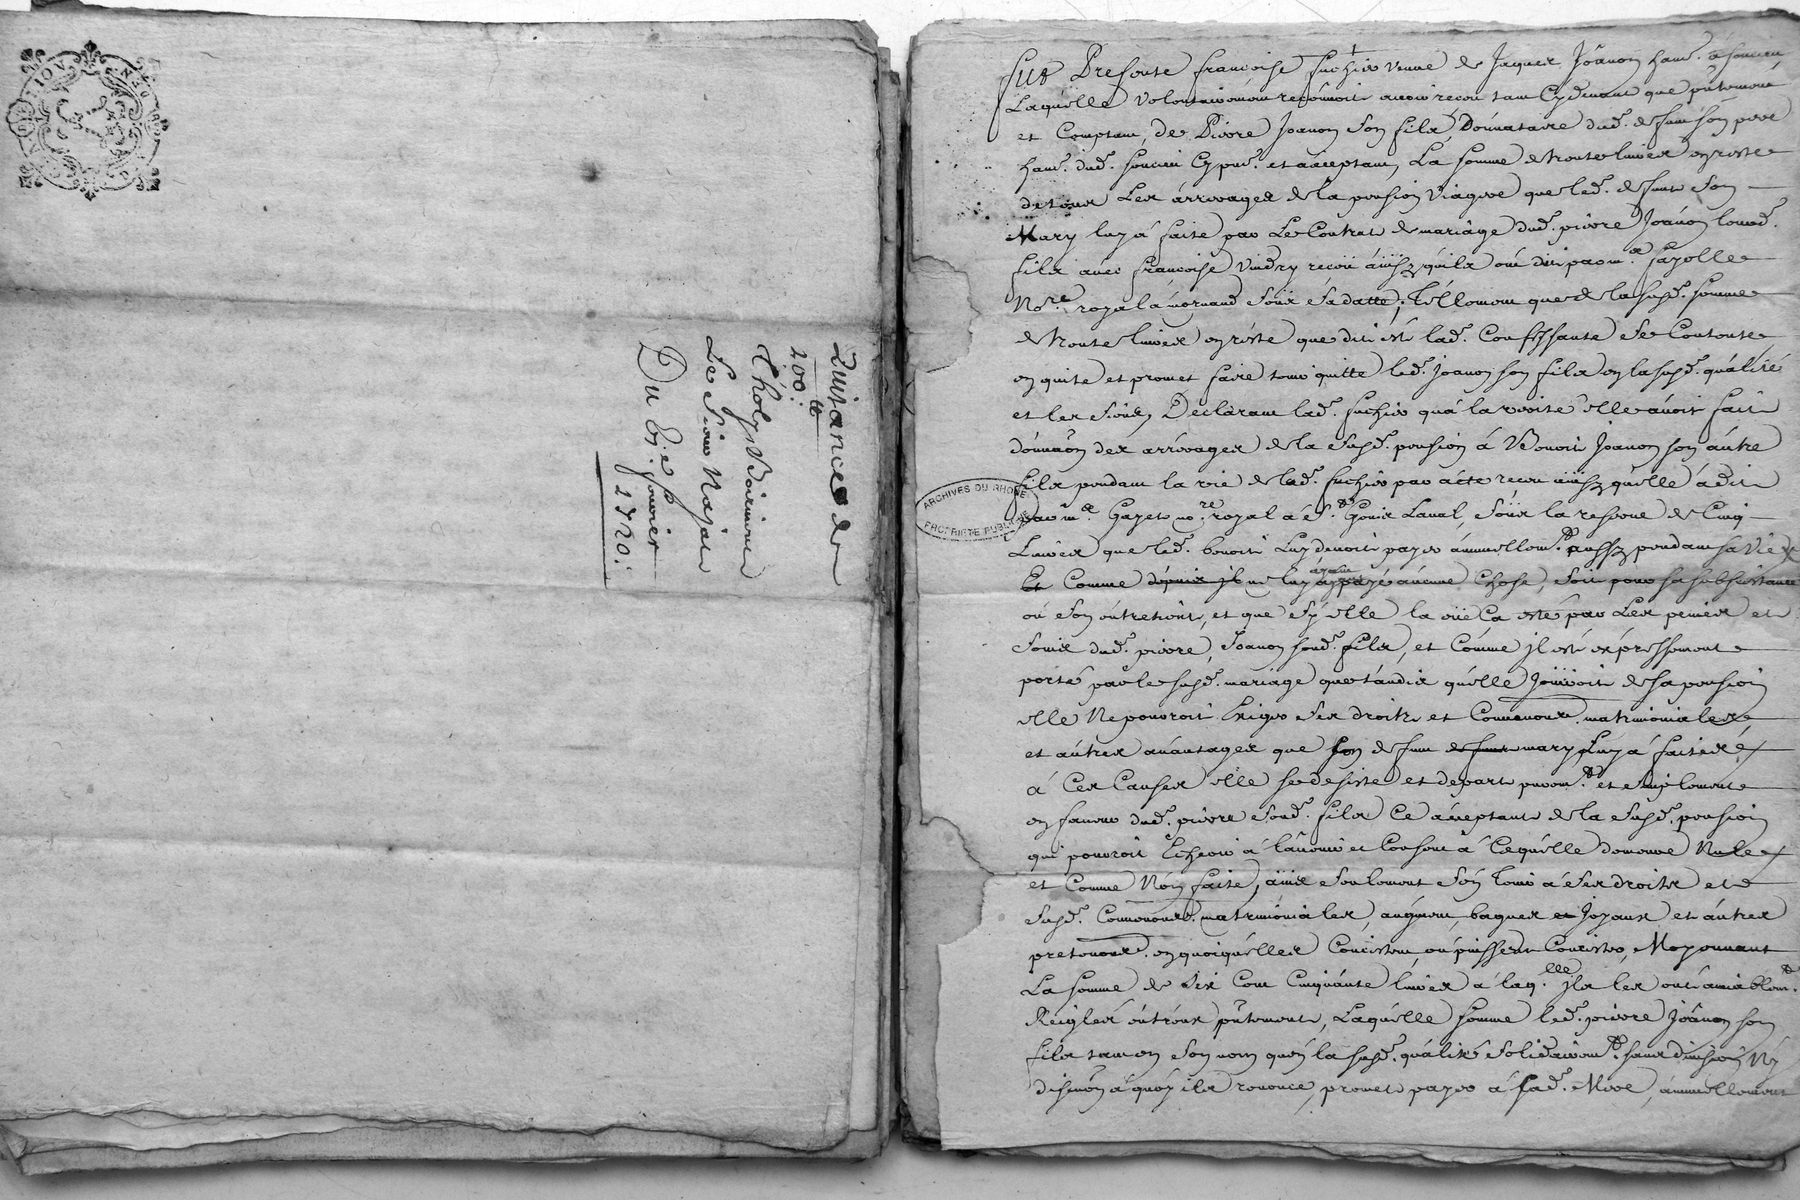 Quitance de
200 ᵗᵗ
Tholy
Le Sieur Major
Du 6.e Janvier
1720.
ARCHIVES DU RHONE
PROPRIETE PUBLIQUE
fut Presente francoise fuchier veuve de Jaques Joânon hant. à soucieu
Laquelle volontairement reconnoit avoir receu tant Cydevant que pntement
et Comptant, de Pierre Joanon Son fils Donnataire dud. defunt son pere
hant. dud. soucieu Cy pnt. et acceptant, La somme de trente livres en reste
de tous Les arrerages de la pension viagere que led. defunt Son
Mary luy à faite par Le Contrat de mariage dud. pierre Joanon leurd.
fils avec francoise Vindry receü ainsy quils ont dit par m.e fayolle
No.re royal à mornand Sous Sa datte, Téllement que de la susd. somme
de trente livres en reste que dit est lad. Confessante Se Contente
en quite et promet faire tenir quitte led. Joanon son fils en la susd. qualité
et les Siens, Déclarant lad. fuchier quà la verite elle avoit fait
donnaon des arrerages de la Susd. pension à Benoit Joanon son autre
fils pendant la vie de lad. fuchier par acte receu ainsy quelle à dit
par m.e Gayet no.re royal à S.t Genis Laval, Sous la reserve de Cinq
Livres que led. benoit Luy devoit payer annuellem.t aussy pendant sa vie
Et Comme depuis il ne luy ayant payé aucune Chose, Soit pour sa subsistance
ou Son entretient, et que Sy elle la eüe Ca esté par Les peines et
Soins dud. pierre Joanon sond. fils, et Comme il est expressement
porté par le susd. mariage que tandis quelle Joüiroit de sa pension
elle Ne pouroit Exiger Ses droits et Convenons. matrimoniales
et autres avantages que son defunt mary Luy à faites
à Ces Causes elle se desiste et depart purem.t et simplement
en faveur dud. pierre Sond. fils Ce acceptant de la Susd. pension
qui pouroit Echeoir à l'avenir et Consent à Cequelle demeure Nulle
et Comme Non faite, ains Seulement Sen tenir à Ses droits et
Susd. Convenons. matrimoniales, augment, bagues et Joyaux et autres
pretenons. en quoiquelles Consistent, ou puissent Consister, Moyennant
La somme de Six Cent Cinquante livres à laq.lle ils les ont amiablem.t
Reiglés entreux pntement, Laquelle somme led. pierre Joânon son
fils tant en Son nom quen la susd. qualité Solidairem.t sans division Ny
discution à quoy ils renonce, promet payer à sad. Mere, annuellement